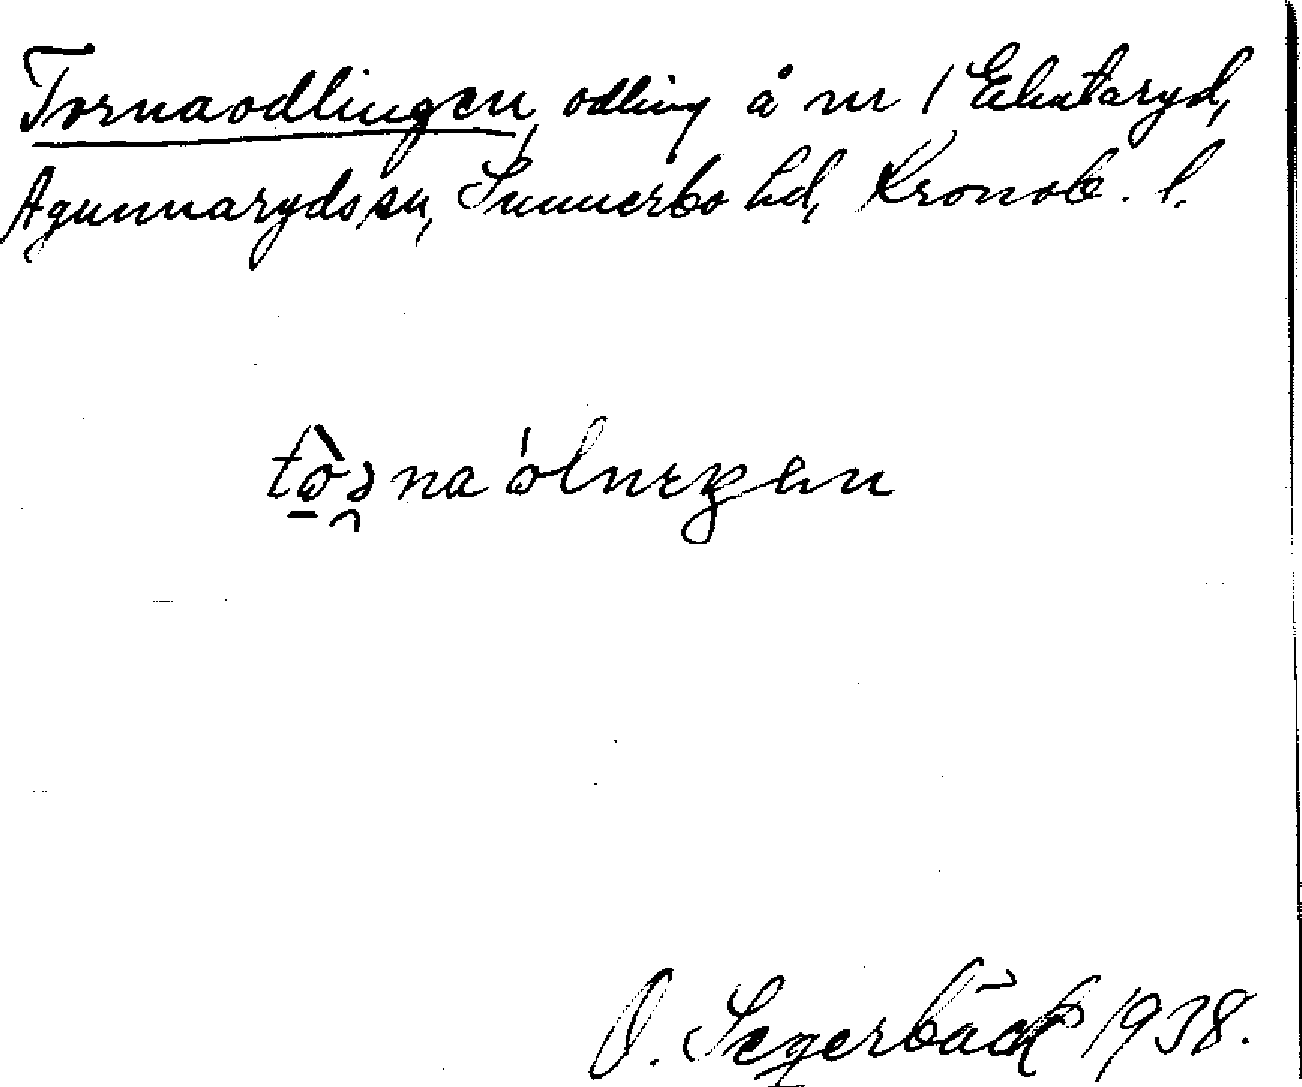 Tornaodlingen, odling å nr 1 Eknaryd,
Agunnaryds sn, Sunnerbo hd, Kronob. l.
O. Segerbäck 1938.